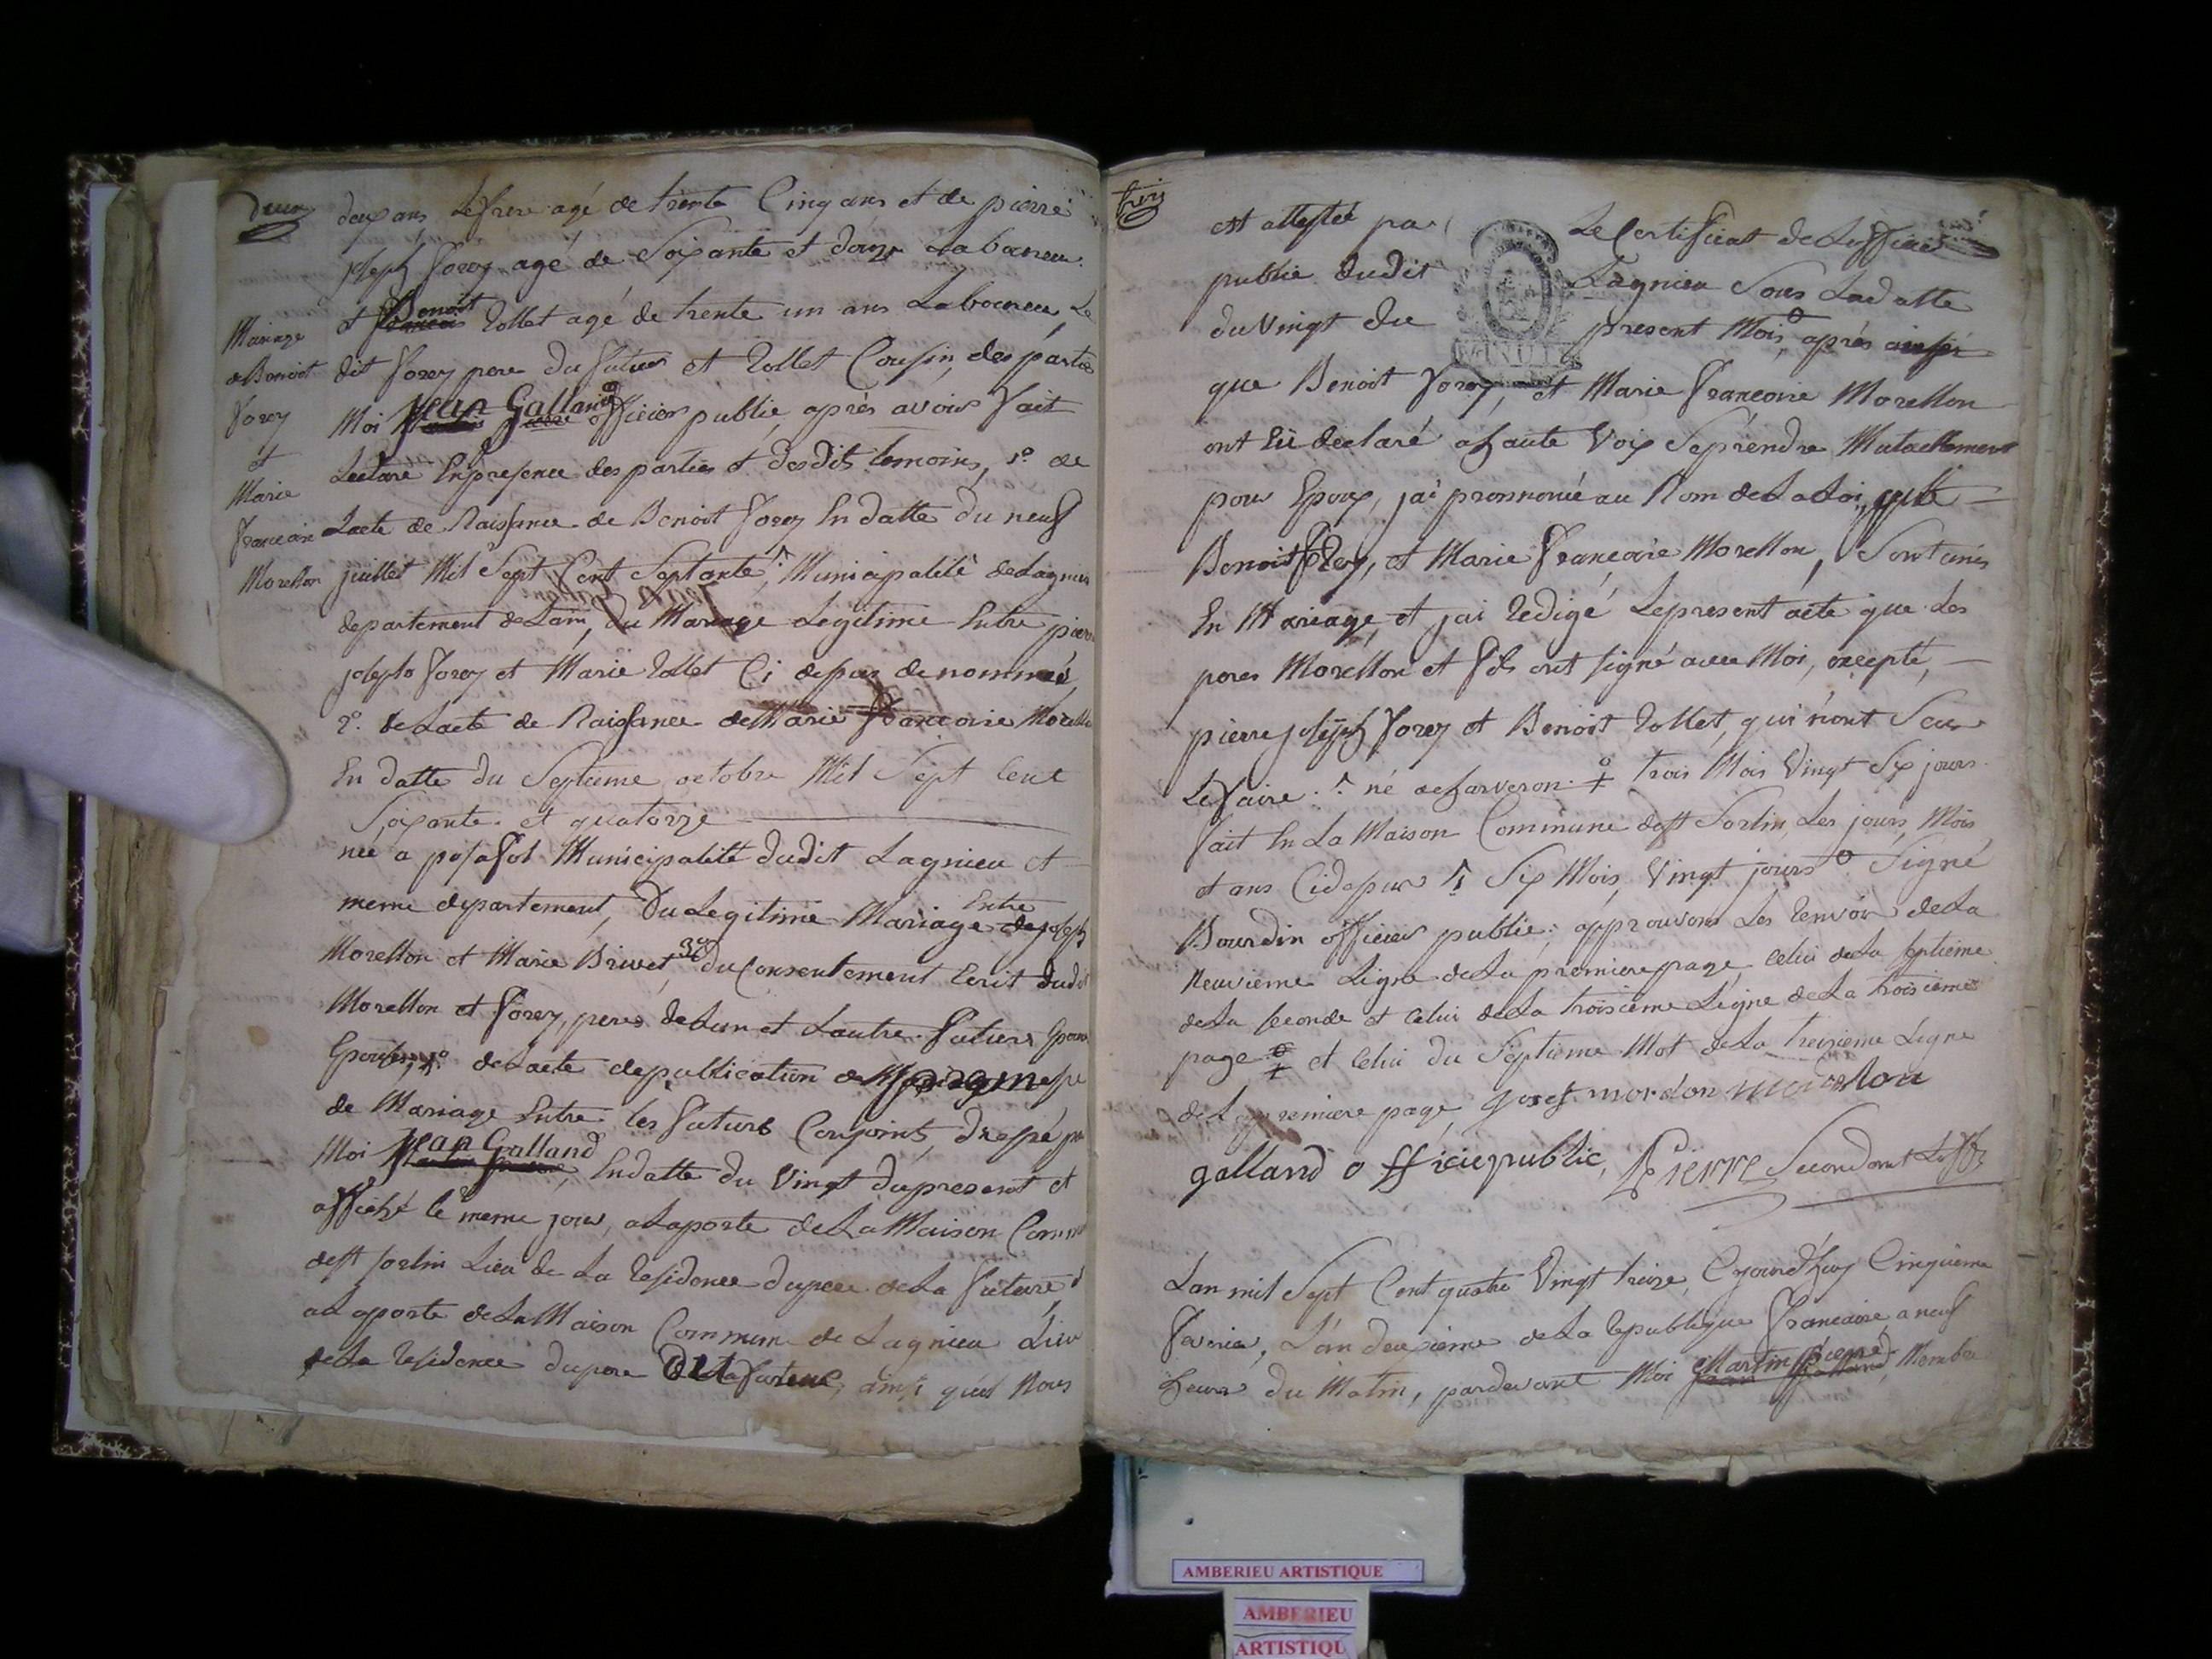 deux
deux ans, Le frere agé de trente Cinq ans et de pierre
joseph forey agé de Soixante et douze Laboureur
et francois Benoit Rollet agé de trente un ans Laboureur, Le
dit forey pere du futur et Rollet Cousin des parties
Moi Jean Galland officier public, aprés avoir fait
Lecture En presence des parties et desdits temoins, 1º. de
Lacte de Naissance de Benoit forey En datte du neuf
juillet Mil Sept Cent Septante, Municipalité de Lagnieu
departement de Lain, du Mariage Legitime Entre pierre
joseph forey et Marie Rollet Ci depus denommés,
2º. de Lacte de Naissance de Marie francoise Morellon
En datte du Septieme octobre Mil Sept Cent
Soixante et quatorze
née a posafol Municipalité dudit Lagnieu et
meme departement, du Legitime Mariage Entre joseph
Morellon et Marie Brivet, 3º du Consentement Ecrit dudit
Morellon et forey, peres de Lun et Lautre futurs Epoux
de Lacte de publication de
de Mariage Entre les futurs Conjoints, dressé par
Moi Jean Galland, En datte du Vingt du present et
affiché le meme jour, a La porte de La Maison Commune
de st Sorlin Lieu de La Residence du pere de La future et
a La porte de La Maison Commune de Lagnieu Lieu
de La Residence du pere, ainsi quil Nous
Mariage
de Benoit
forey
et
Marie
francoise
Morellon
trois
est attesté par Le Certificat de Lofficier
public dudit Lagnieu Sous La datte
du Vingt du present Mois, aprés
que Benoit forey, et Marie francoise Morellon
ont Eü declaré a haute Voix Se prendre Mutuellement
pour Epoux, jai prononcé au Nom de La Loi, que
Benoit forey, et Marie francoise Morellon, Sont unis
En Mariage, et jai Redigé Le present acte que Les
peres Morellon et fils ont signé avec Moi, excepté,
pierre joseph forey et Benoit Rollet, qui n'ont Seu
Le faire. né a charveron trois Mois Vingt Six jours
fait En La Maison Commune de st Sorlin, Les jours, Mois
et ans Cidepus Six Mois, Vingt jours Signé
Bourdin officier public; approuvons Les Renvois de La
Neuvieme Ligne de La premiere page, Celui de La septieme
de La seconde et Celui de La troisieme Ligne de La troisieme
page et Celui du Septieme Mot de La treizieme Ligne
de La premiere page, Josef mordon morellon
galland officie public, Pierre
Lan mil Sept Cent quatre Vingt treize, Cejourd'huy Cinquieme
fevrier, L'an deuxieme de La Republique francaise a neuf
heures du Matin, pardevant Moi Martin pierre, Membre
AMBERIEU ARTISTIQUE
AMBERIEU
ARTISTIQU